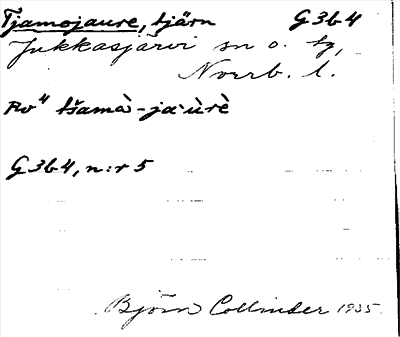 Tjamojaure, tjärn G3b4
Jukkasjärvi sn o. tg,
Norrb. l.
Rv⁴ tšamà-ja·ùrè
G3b4, n:r 5
Björn Collinder 1935